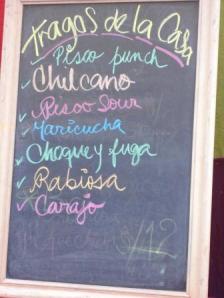 Tragos de la Casa
Pisco punch
Chilcano
Pisco Sour
Maricucha
Choque y fuga
Rabiosa
Carajo
S/12